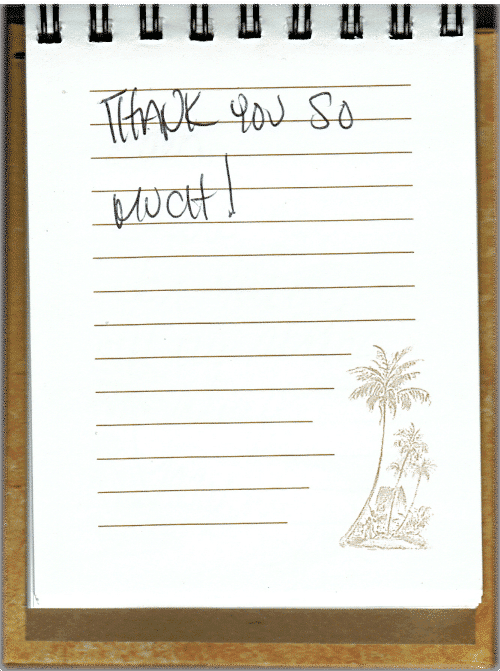 THANK YOU SO
MUCH!